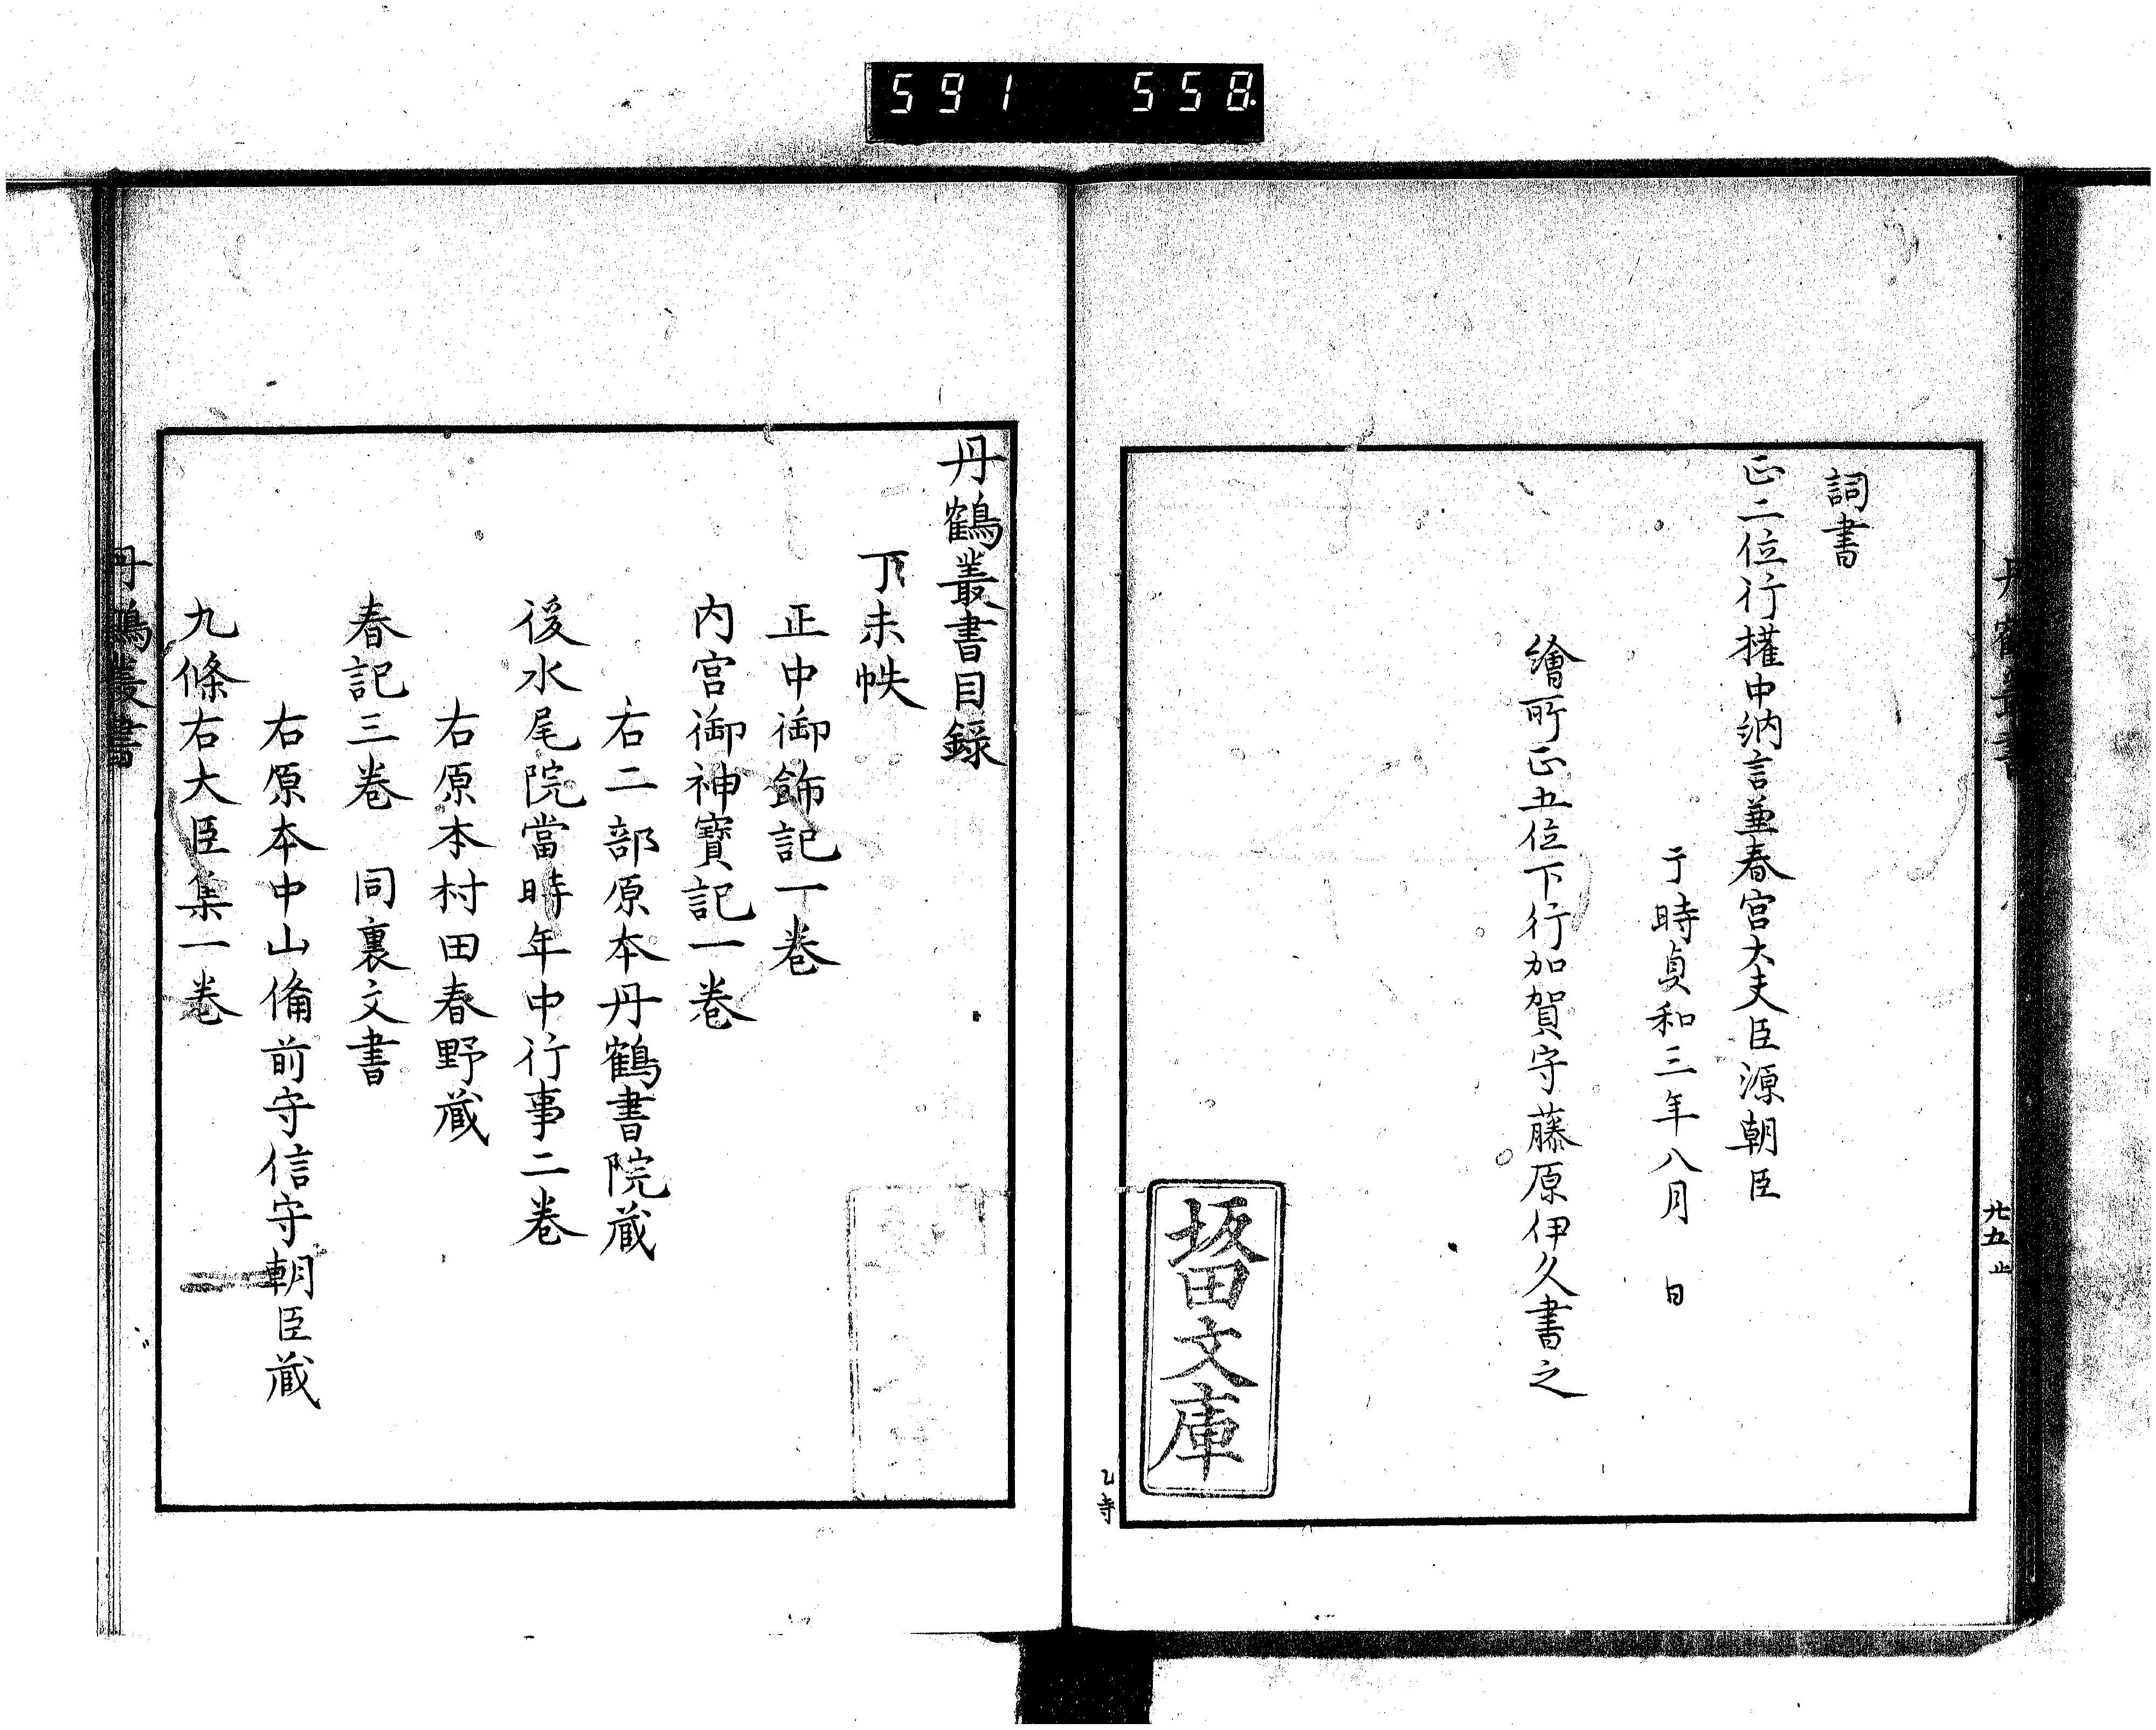 591 558
詞書
正二位行權中納言兼春宮大夫臣源朝臣
于時貞和三年八月 日
繪所正五位下行加賀守藤原伊久書之
丹鶴叢書
廿五止
乙寺
文庫
丹鶴叢書目録
丁未帙
正中御餝記一卷
内宮御神寶記一卷
右二部原本丹鶴書院藏
後水尾院當時年中行事二卷
右原本村田春野藏
春記三卷 同裏文書
右原本中山備前守信守朝臣藏
九條右大臣集一卷
丹鶴叢書